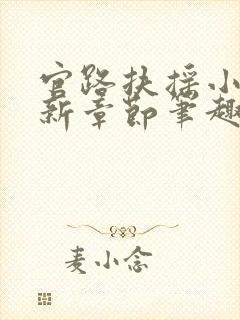 官路扶摇小
新章节笔趣
麦小念